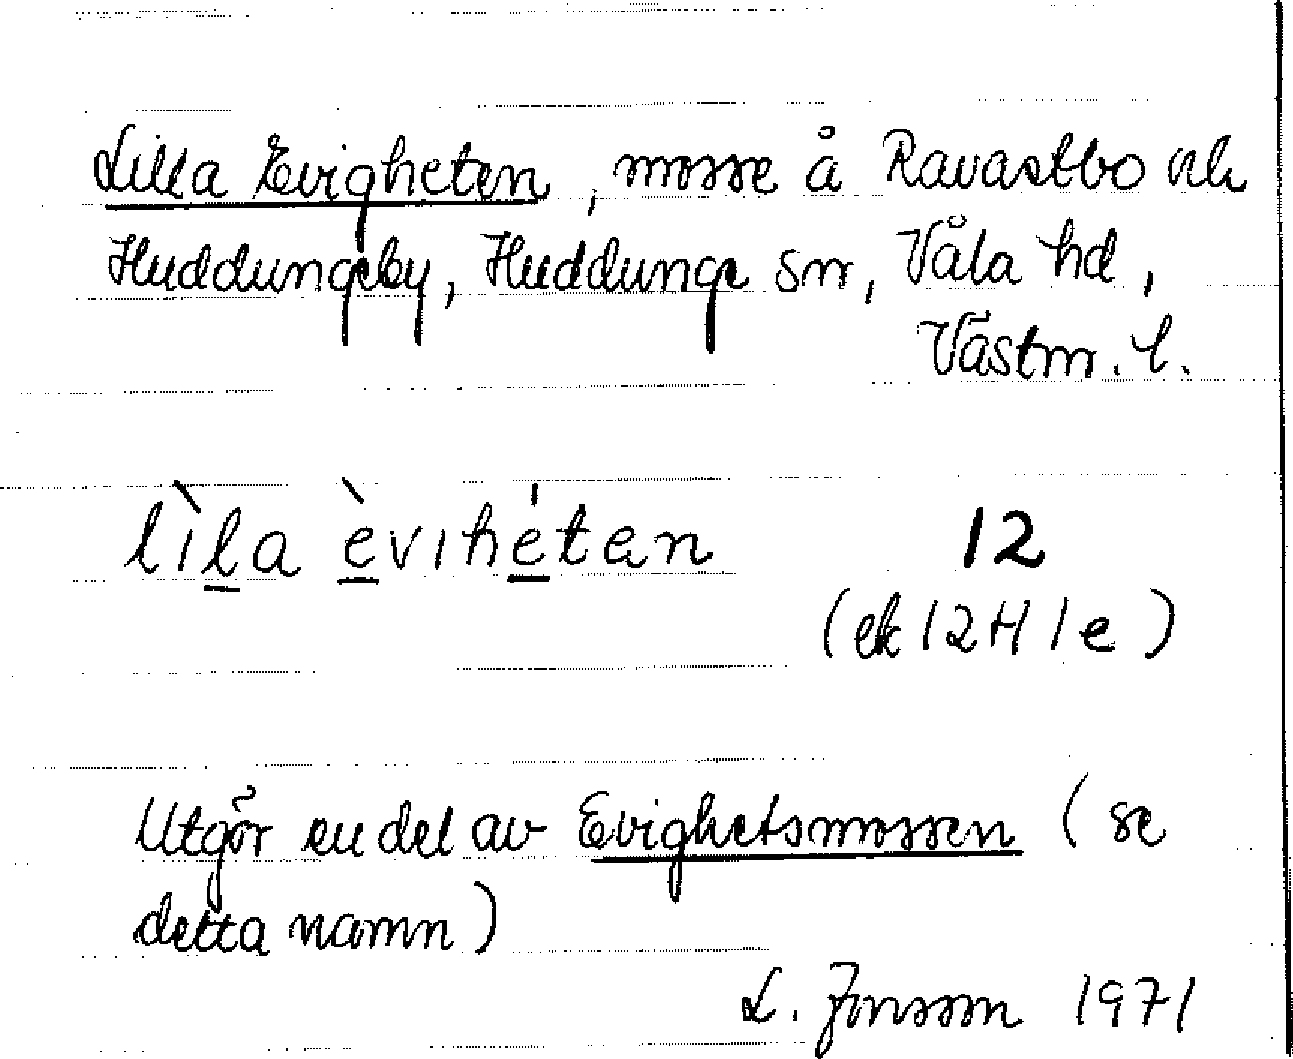 Lilla Evigheten, mosse å Ravastbo och
Huddungeby, Huddunge sn, Våla hd,
Västm. l.
lìla èvihéten 12
(ek 12H1e)
Utgör en del av Evighetsmossen (se
detta namn)
L. Jonsson 1971